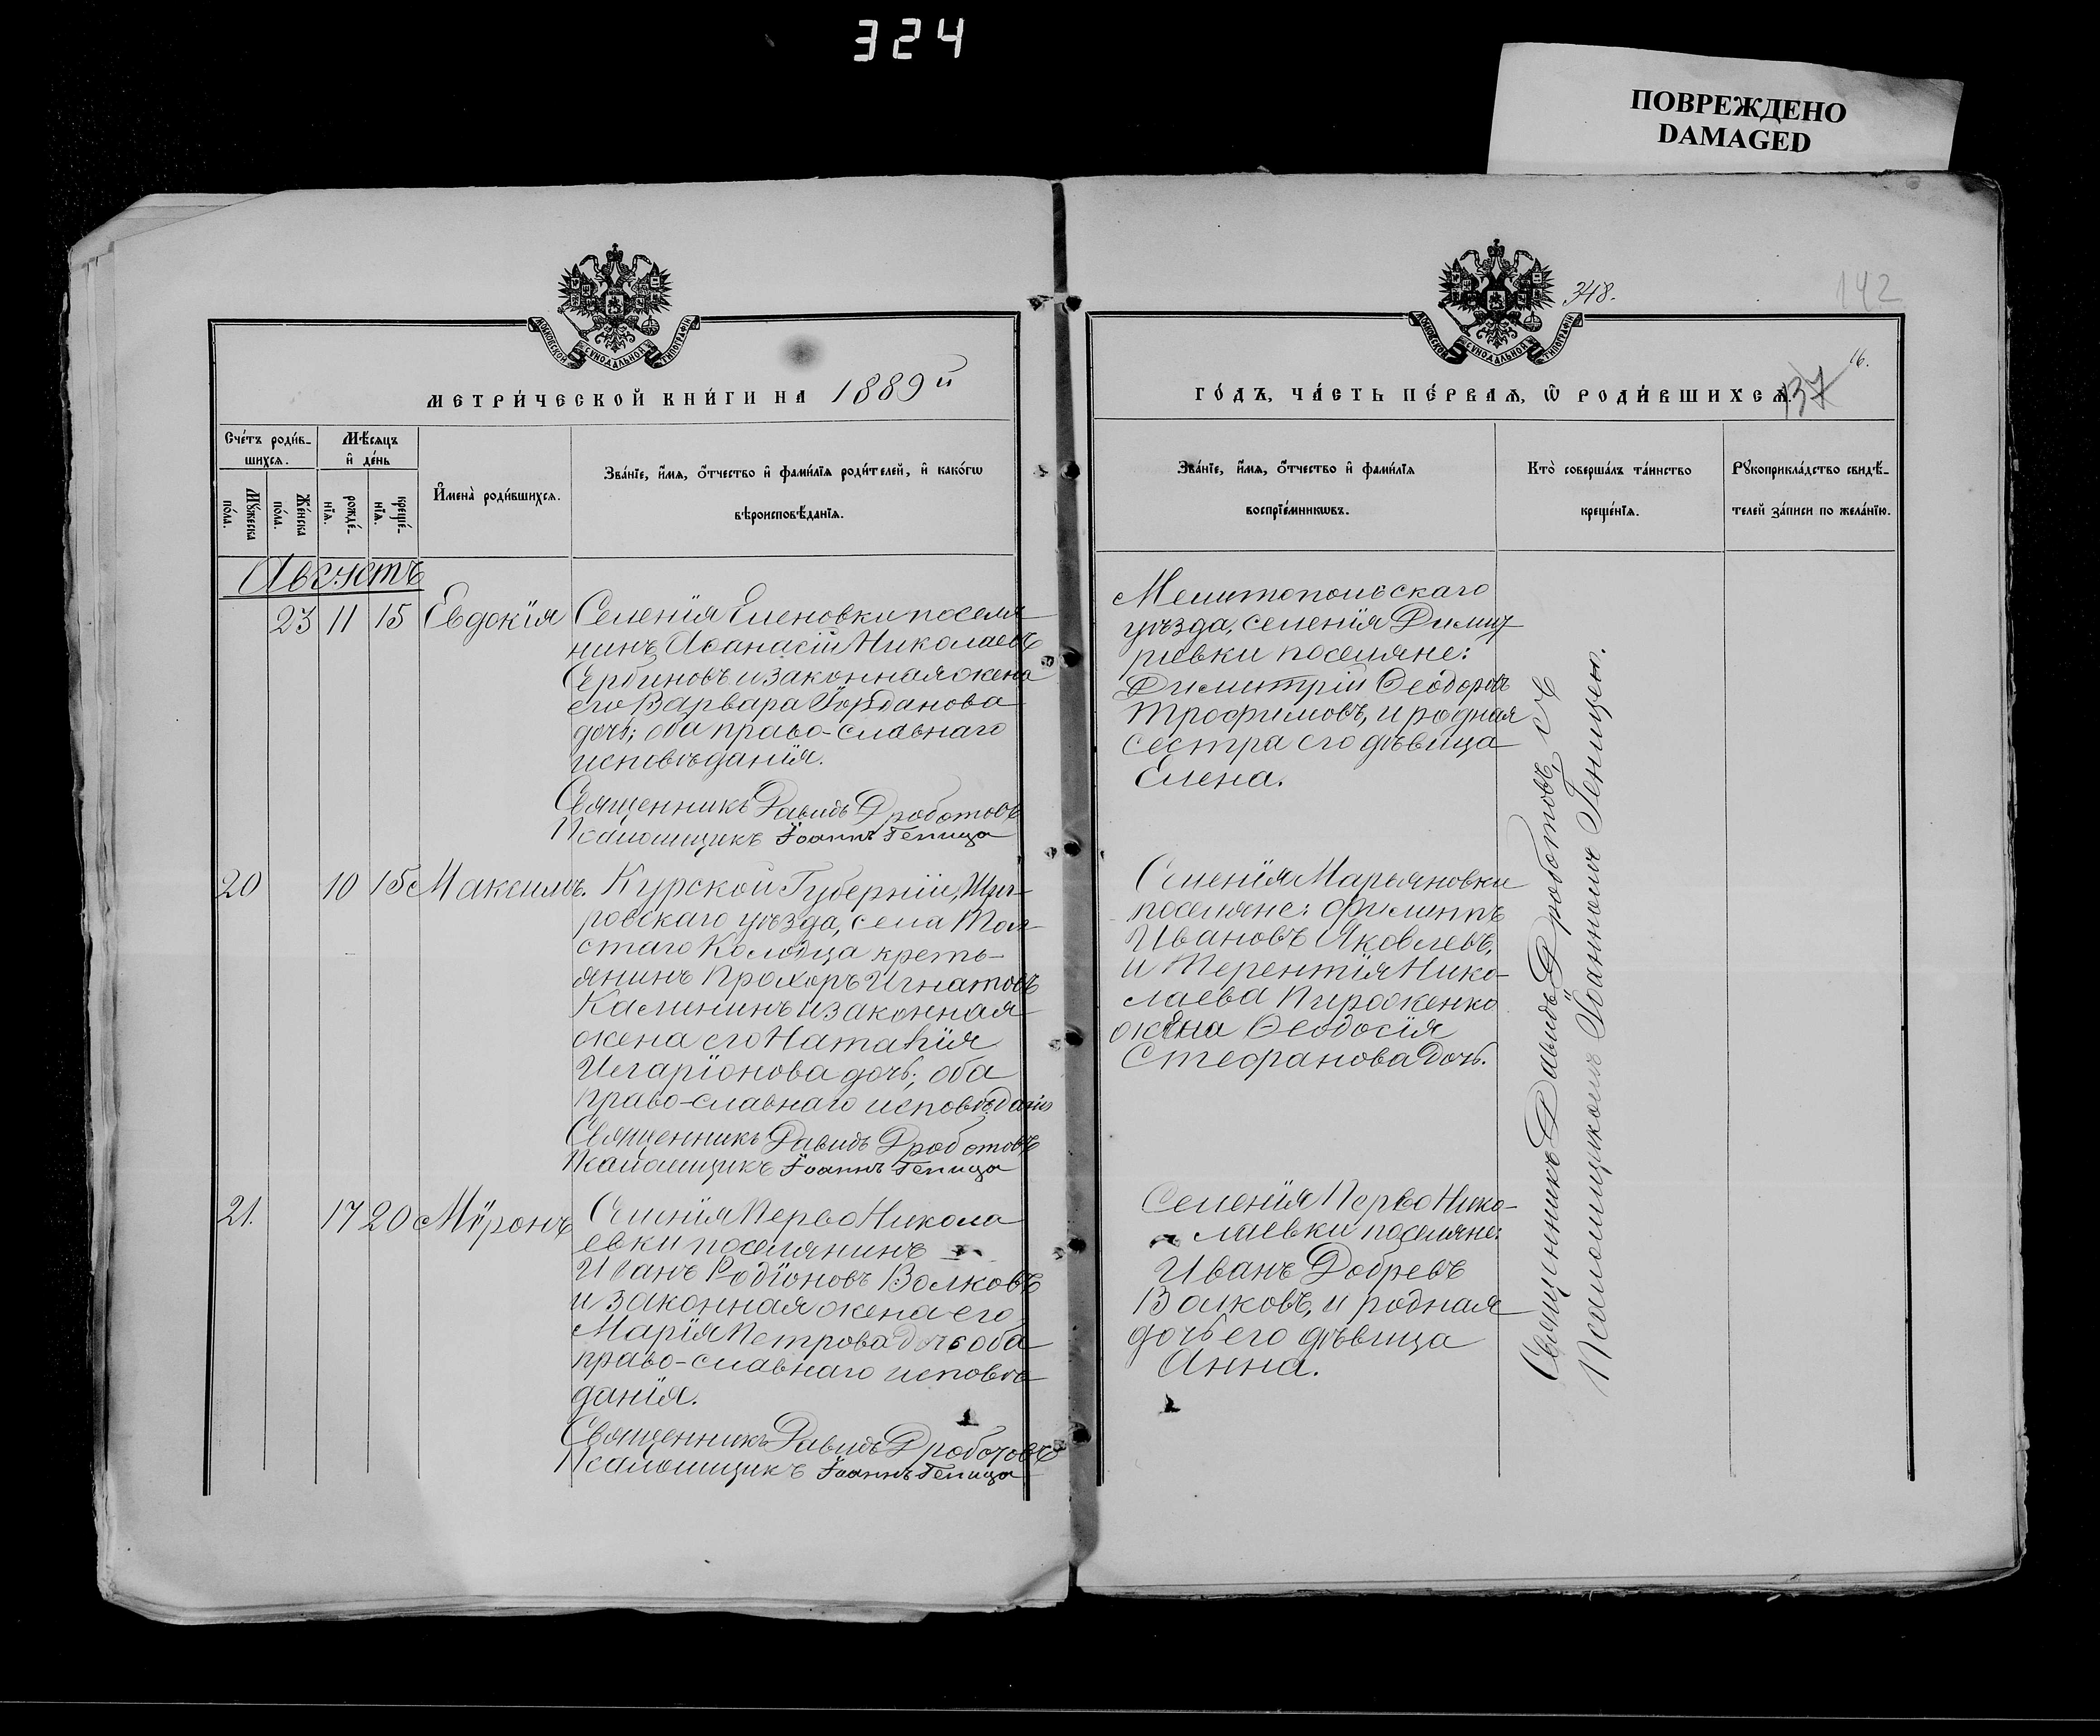 324
ПОВРЕЖДЕНО
DAMAGED
МОСКОВСКОЙ СѴНОДАЛЬНОЙ ТИПОГРАФІИ
МЕТРИ́ЧЕСКОЙ КНИ́ГИ НА 1889й
Сче́тъ роди́в-
шихсѧ.
Мѣ́сѧцъ
и҆ де́нь
Мꙋ́жеска
по́ла.
Же́нска
по́ла.
рожде́-
нїѧ.
креще́-
нїѧ.
И҆мена̀ роди́вшихсѧ.
Зва́нїе, и҆́мѧ, ѻ҆́тчество и҆ фами́лїѧ роди́телей, и҆ како́гѡ
вѣроисповѣ́данїѧ.
Августъ
23 11 15 Евдокія
Селенія Еленовки поселя
нинъ Аѳанасій Николаевъ
Сербиновъ и законная жена
его Варвара Іорданова
дочь; оба право-славнаго
исповѣданія.
Священникъ Давидъ Дроботовъ
Псаломщикъ Іоаннъ Геница
20 10 15 Максимъ.
Курской Губерніи, Щиг-
ровскаго уѣзда, села Тол
стаго Колодца кресть-
янинъ Прохоръ Игнатовъ
Калининъ и законная
жена его Наталія
Иларіонова дочь; оба
право-славнаго исповѣданія
Священникъ Давидъ Дроботовъ
Псаломщикъ Іоаннъ Геница
21. 17 20 Мѵронъ
Селенія Перво Никола
евки поселянинъ
Иванъ Родіоновъ Волковъ
и законная жена его
Марія Петрова дочь оба
право-славнаго исповѣ
данія.
Священникъ Давидъ Дроботовъ
Псаломщикъ Іоаннъ Геница
348.
142
МОСКОВСКОЙ СѴНОДАЛЬНОЙ ТИПОГРАФІИ
16.
137
ГО́ДЪ, ЧА́СТЬ ПЕ́РВАѦ, Ѽ РОДИ́ВШИХСѦ.
Зва́нїе, и҆́мѧ, ѻ҆́тчество и҆ фами́лїѧ
воспрїе́мникѡвъ.
Кто̀ соверша́лъ та́инство
креще́нїѧ.
Рꙋкоприкла́дство свидѣ́-
телей за́писи по жела́нїю.
Мелитопольскаго
уѣзда, селенія Димит
ріевки поселяне:
Димитрій Ѳеодоровъ
Трофимовъ, и родная
сестра его дѣвица
Елена.
Селенія Марьяновки
поселяне: Филиппъ
Ивановъ Яковлевъ,
и Терентія Нико-
лаева Пироженко
жена Ѳеодосія
Стефанова дочь.
Селенія Перво Нико-
лаевки поселяне:
Иванъ Добревъ
Волковъ, и родная
дочь его дѣвица
Анна.
Священникъ Давидъ Дроботовъ, съ
Псаломщикомъ Іоанномъ Геницею.